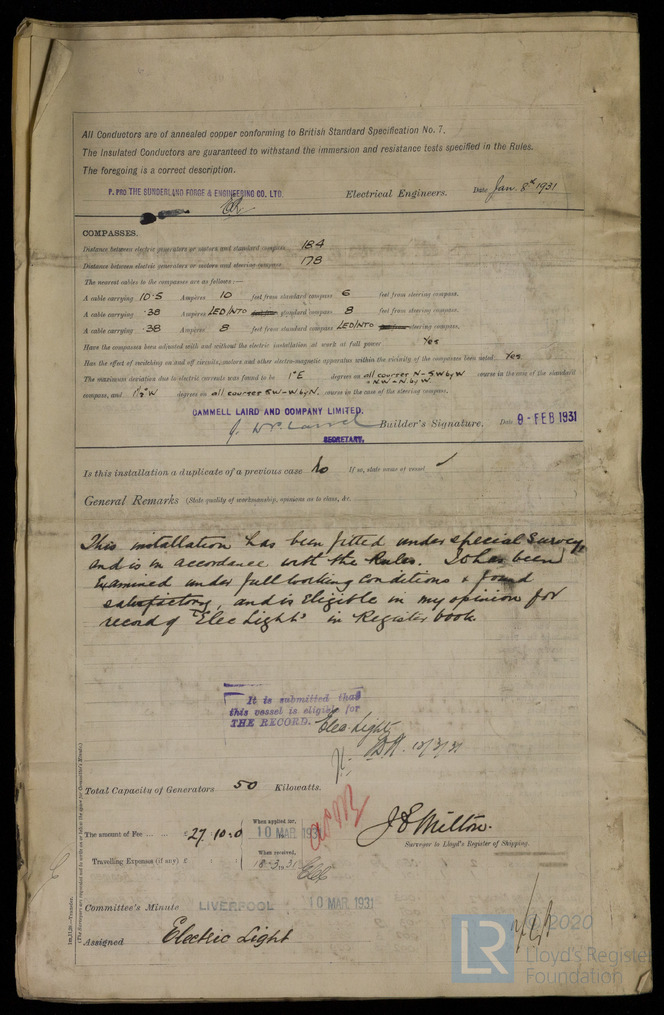 All Conductors are of annealed copper conforming to British Standard Specification No. 7.
The Insulated Conductors are guaranteed to withstand the immersion and resistance tests specified in the Rules.
The foregoing is a correct description.
P. PRO THE SUNDERLAND FORGE & ENGINEERING CO. LTD. Electrical Engineers. Date Jan. 8th 1931
COMPASSES.
Distance between electric generators or motors and standard compass 184
Distance between electric generators or motors and steering compass 178
The nearest cables to the compasses are as follows:—
A cable carrying 10.5 Ampères 10 feet from standard compass 6 feet from steering compass.
A cable carrying .38 Ampères LED INTO standard compass 8 feet from steering compass.
A cable carrying .38 Ampères 8 feet from standard compass LED INTO steering compass.
Have the compasses been adjusted with and without the electric installation at work at full power Yes
Has the effect of switching on and off circuits, motors and other electro-magnetic apparatus within the vicinity of the compasses been noted Yes
The maximum deviation due to electric currents was found to be 1°E degrees on all courses N-SW by W + NW-N by W. course in the case of the standard
compass, and 1½°W degrees on all courses SW-W by N. course in the case of the steering compass.
CAMMELL LAIRD AND COMPANY LIMITED.
Builder's Signature. Date 9 - FEB 1931
SECRETARY.
Is this installation a duplicate of a previous case No If so, state name of vessel ✓
General Remarks (State quality of workmanship, opinions as to class, &c.
This installation has been fitted under special survey,
and is in accordance with the Rules. It has been
examined under full working conditions & found
satisfactory, and is eligible in my opinion for
record of "Elec Light" in Register book.
It is submitted that
this vessel is eligible for
THE RECORD. Elec Light
13/3/31
Total Capacity of Generators 50 Kilowatts.
The amount of Fee ... ... £ 27 : 10 : 0 When applied for, 10 MAR 1931
J E Milton.
Surveyor to Lloyd's Register of Shipping.
Travelling Expenses (if any) £ : : When received, 18-3-31
Committee's Minute LIVERPOOL 10 MAR. 1931
Assigned Electric Light
(The Surveyors are requested not to write on or below the space for Committee's Minute.)
©2020
LR Lloyd's Register
Foundation